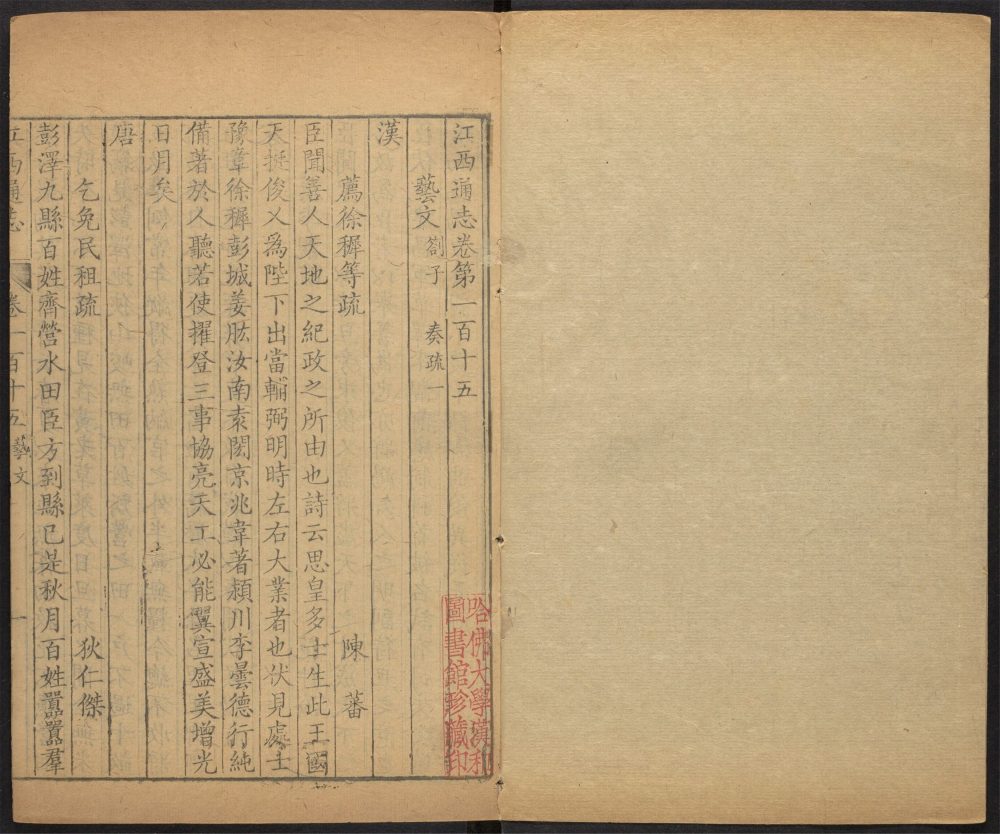 江西通志卷第一百十五
藝文 劄子 奏疏一
漢
薦徐穉等疏 陳蕃
臣聞善人天地之紀政之所由也詩云思皇多士生此王國
天挺俊乂爲陛下出當輔弼明時左右大業者也伏見處士
豫章徐穉彭城姜肱汝南袁閎京兆韋著潁川李曇德行純
備著於人聽若使擢登三事協亮天工必能翼宣盛美增光
日月矣
唐
乞免民租疏 狄仁傑
彭澤九縣百姓齊營水田臣方到縣已是秋月百姓囂囂羣
江西通志 卷一百十五 藝文 一
哈佛大學漢和
圖書館珍藏印